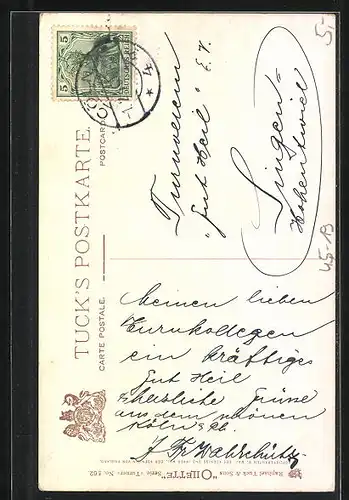 TUCK'S POSTKARTE.
CARTE POSTALE.
POSTCARD
5
5
Turnverein
"Gut Heil" E.V.
Singen-
Hohentwiel
Meinen lieben
Turnkollegen
ein kräftiges
Gut Heil
& herzliche Grüsse
aus dem schönen
Köln a. Rh.
Raphael Tuck & Sons
"OILETTE"
Serie "Turner" No.
5.-
45-13